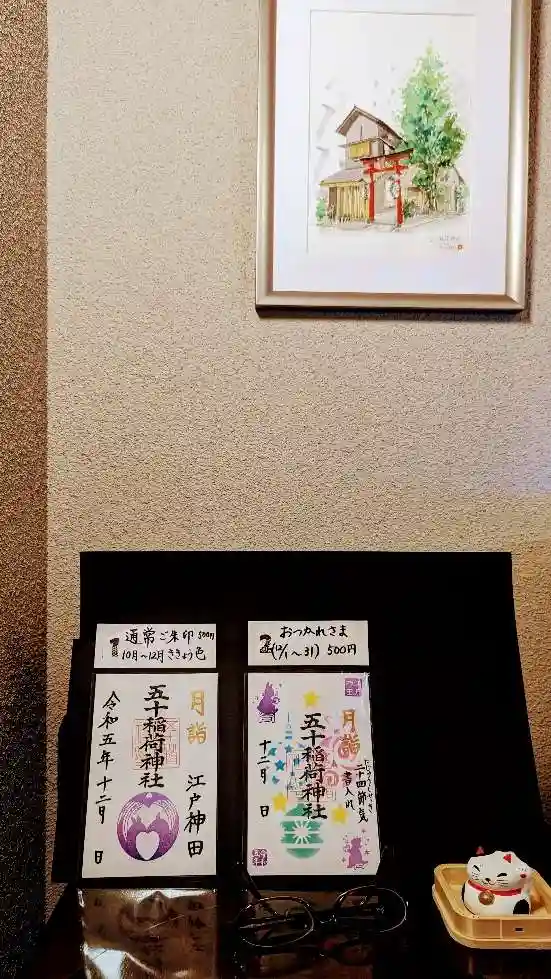 1 通常ご朱印 500円
10月〜12月 ききょう色
月詣
江戸神田
五十稲荷神社
令和五年十二月 日
2 おつかれさま
(12/1〜31) 500円
月詣
にじゅうしせっき
二十四節気
書入れ
五十稲荷神社
十二月 日